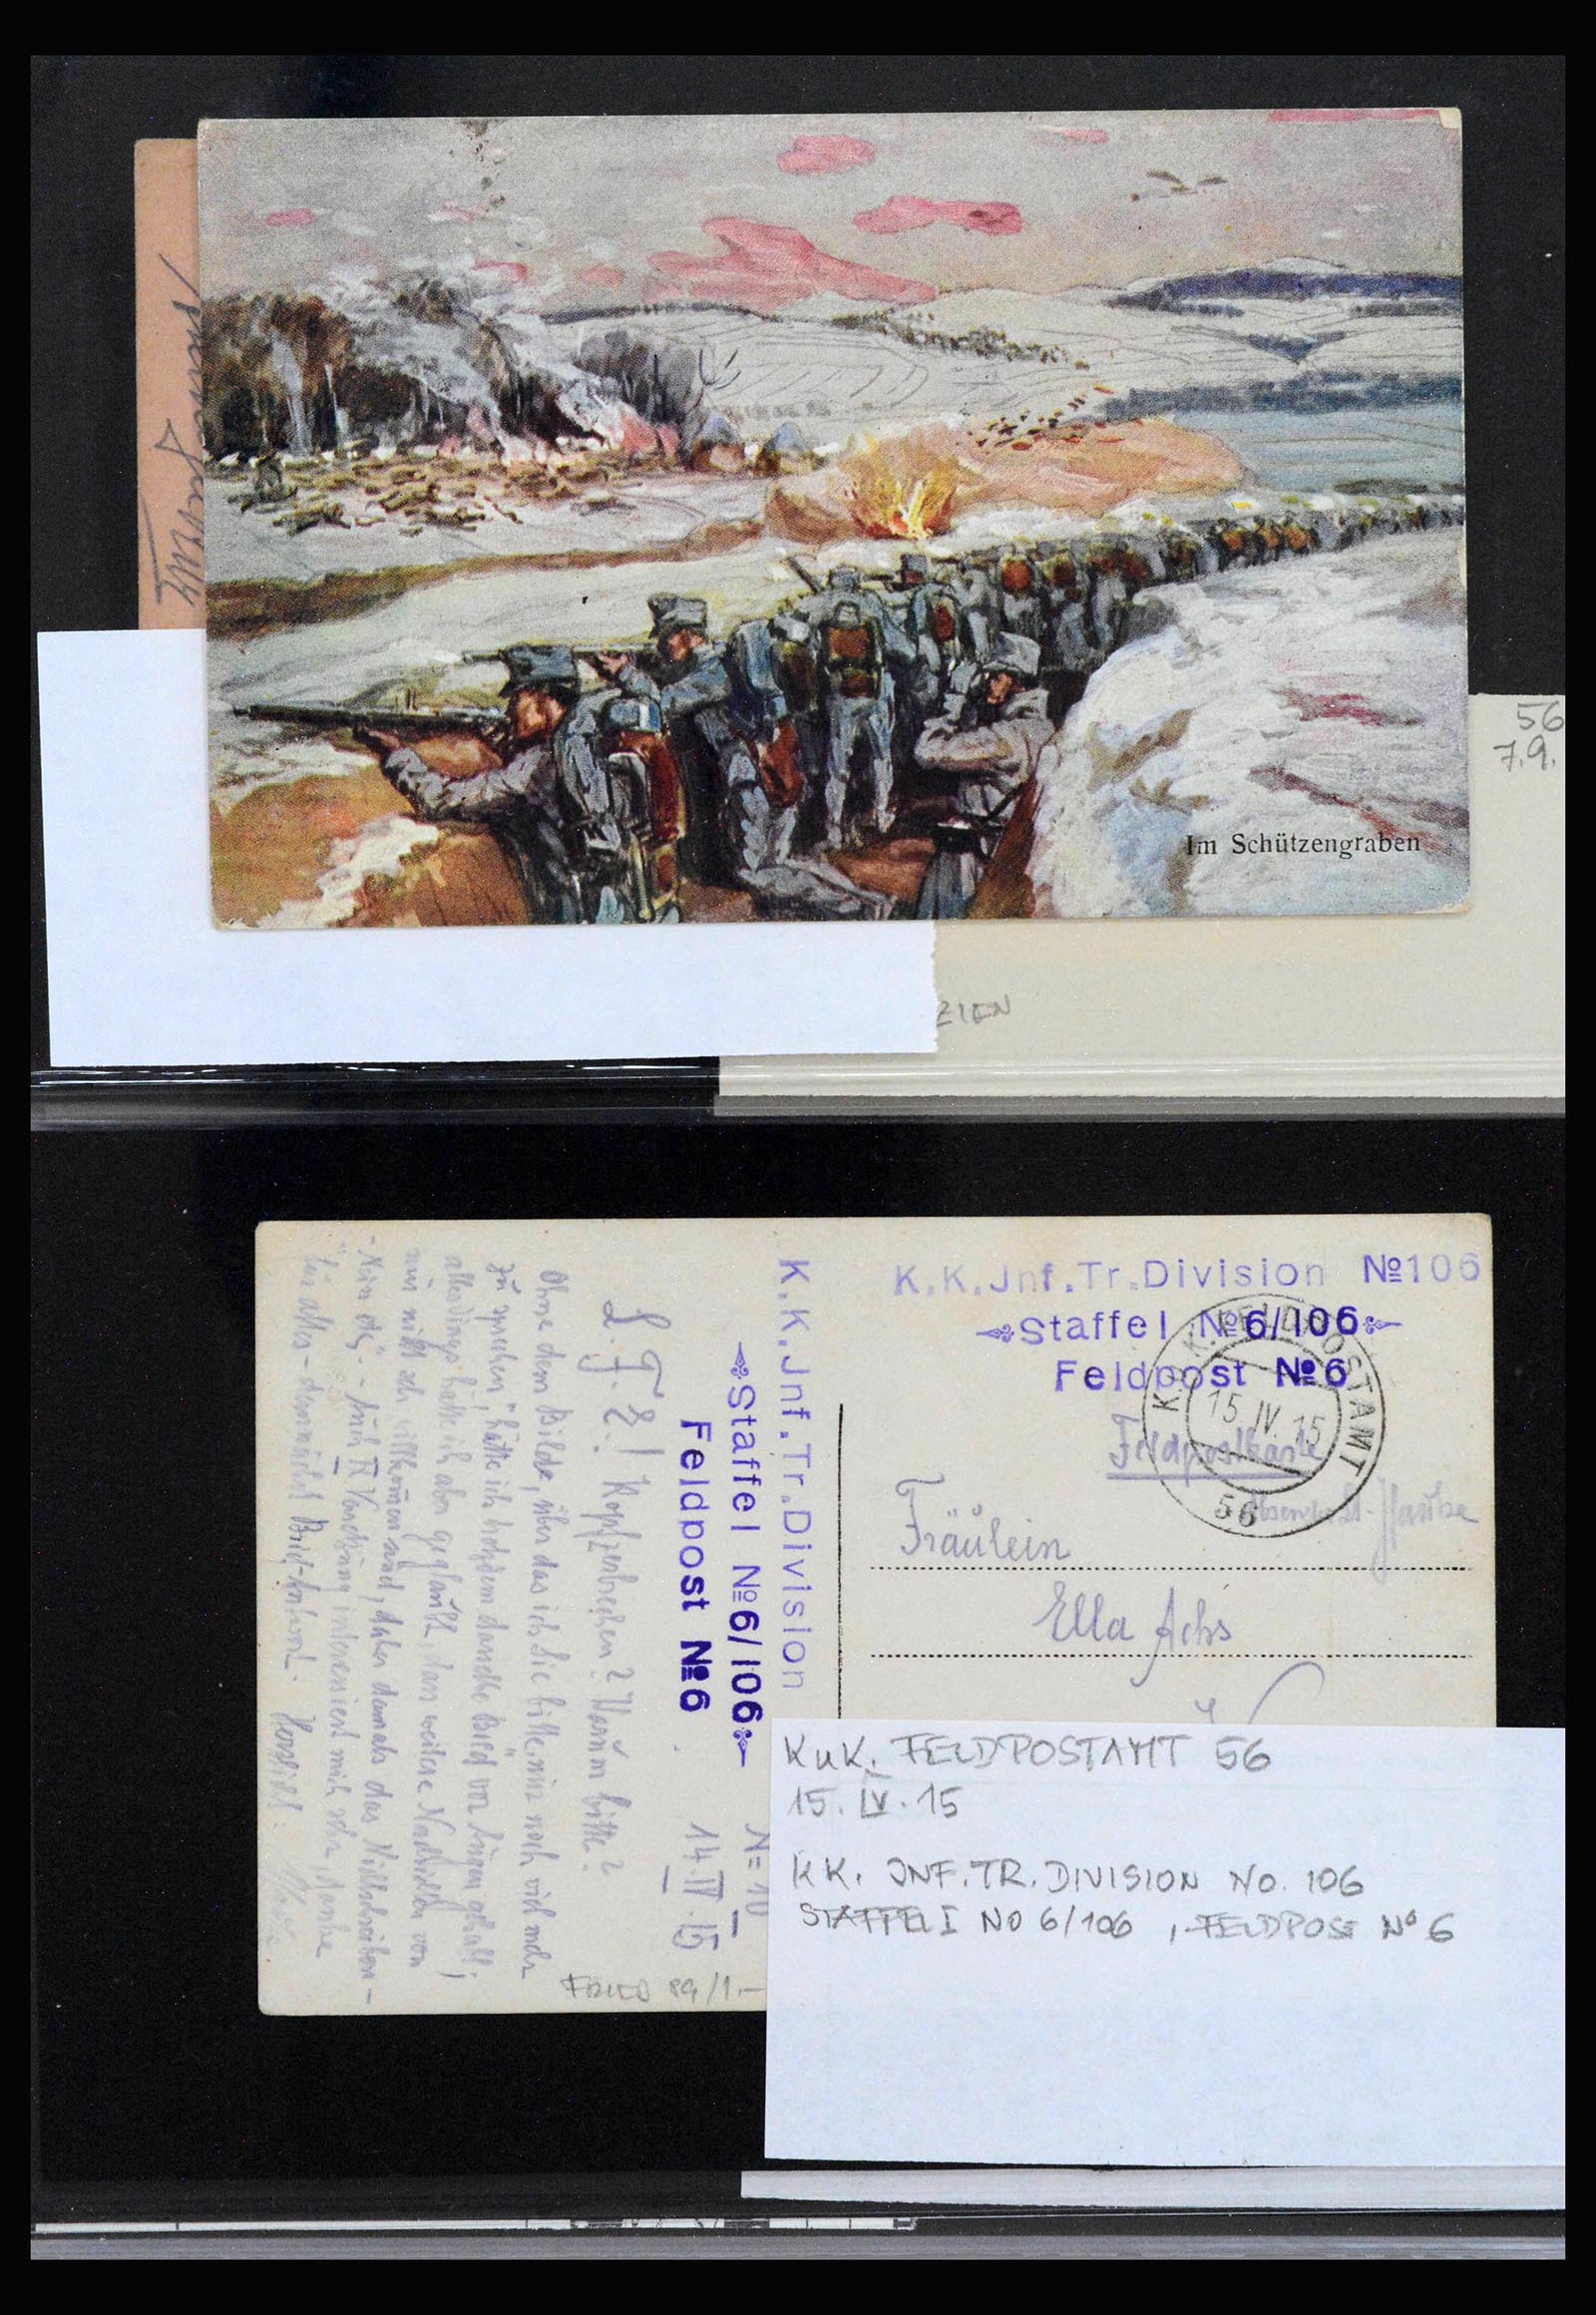 56
7.9.
Im Schützengraben
ZIEN
K.K.Jnf.Tr.Division №106
Staffel № 6/106
Feldpost №6
K.u.K. FELDPOSTAMT
15 IV. 15
56
Feldpostkarte
Fräulein
Ella Achs
K.K.Jnf.Tr.Division
Staffel №6/106
Feldpost №6
N=10
14.IV.15
L. F. E.! Kopfzerbrechen? Warum bitte?
Ohne dem Bilde, über das ich Sie bitte, mir noch viel mehr
zu sprechen, hätte ich trotzdem dasselbe Bild vor Augen gehabt;
allerdings hätte ich aber geglaubt, dass weitere Nachrichten von
mir nicht sehr willkommen sind, daher damals das Nichtschreiben -
interessiert mich sehr, danke
für alles - demnächst Brief-Antwort. Herzlichst:
FRIED 89/1.-
KuK. FELDPOSTAMT 56
15. IV. 15
KK. JNF. TR. DIVISION No. 106
STAFFEL I NO 6/106, FELDPOST No 6